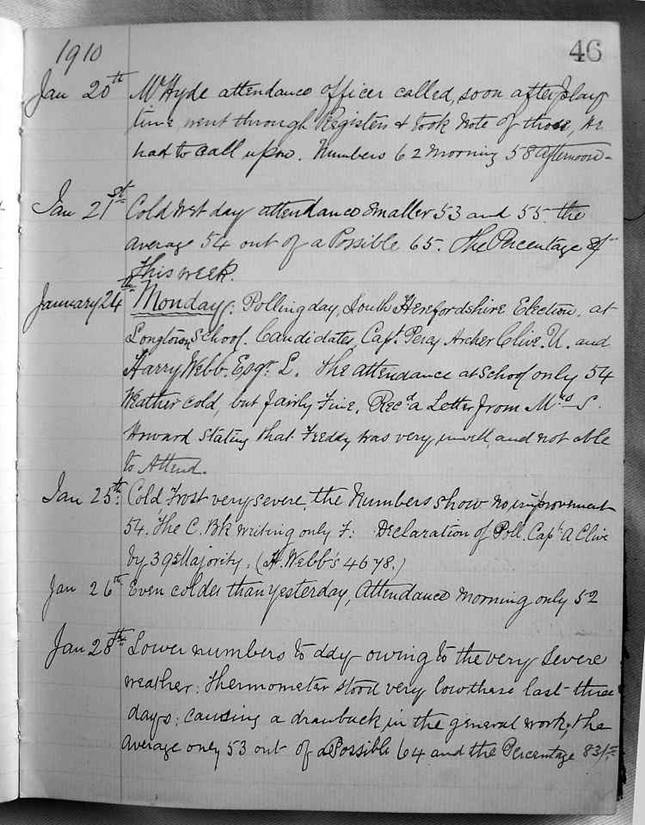 1910
46
Jan 20th Mr Hyde attendance officer called, soon after play
time, went through Registers & took note of those, he
had to call upon. Numbers 62 Morning 58 afternoon -
Jan 21st Cold wet day attendance smaller 53 and 55 the
average 54 out of a Possible 65. The Percentage
this week.
January 24th Monday: Polling day, South Herefordshire Election, at
Longtown School. Candidates, Capt. Percy Archer Clive. U. and
Harry Webb. Esqr. L. The attendance at School only 54
Weather cold, but fairly Fine, Recd a Letter from Mrs S.
Howard stating that Freddy was very unwell, and not able
to Attend.
Jan 25th: Cold Frost very severe, the Numbers show no improvement
54. The C. Bk writing only F: Declaration of Poll. Capt A Clive
by 395 Majority. (H. Webb's 4678.)
Jan 26th Even colder than yesterday, Attendance Morning only 52
Jan 28th Lower numbers to day owing to the very severe
weather: thermometer stood very low these last three
days; causing a drawback in the general work, the
average only 53 out of a Possible 64 and the Percentage 83